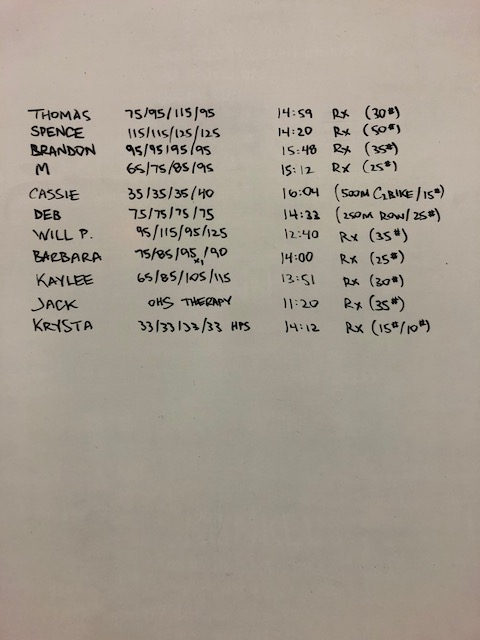 THOMAS 75/95/115/95 14:59 Rx (30#)
SPENCE 115/115/125/125 14:20 Rx (50#)
BRANDON 95/95/95/95 15:48 Rx (35#)
M 65/75/85/95 15:12 Rx (25#)
CASSIE 35/35/35/40 16:04 (500M C2BIKE/15#)
DEB 75/75/75/75 14:33 (250M ROW/25#)
WILL P. 95/115/95/125 12:40 Rx (35#)
BARBARA 75/85/95x1/90 14:00 Rx (25#)
KAYLEE 65/85/105/115 13:51 Rx (30#)
JACK OHS THERAPY 11:20 Rx (35#)
KRYSTA 33/33/33/33 HPS 14:12 Rx (15#/10#)